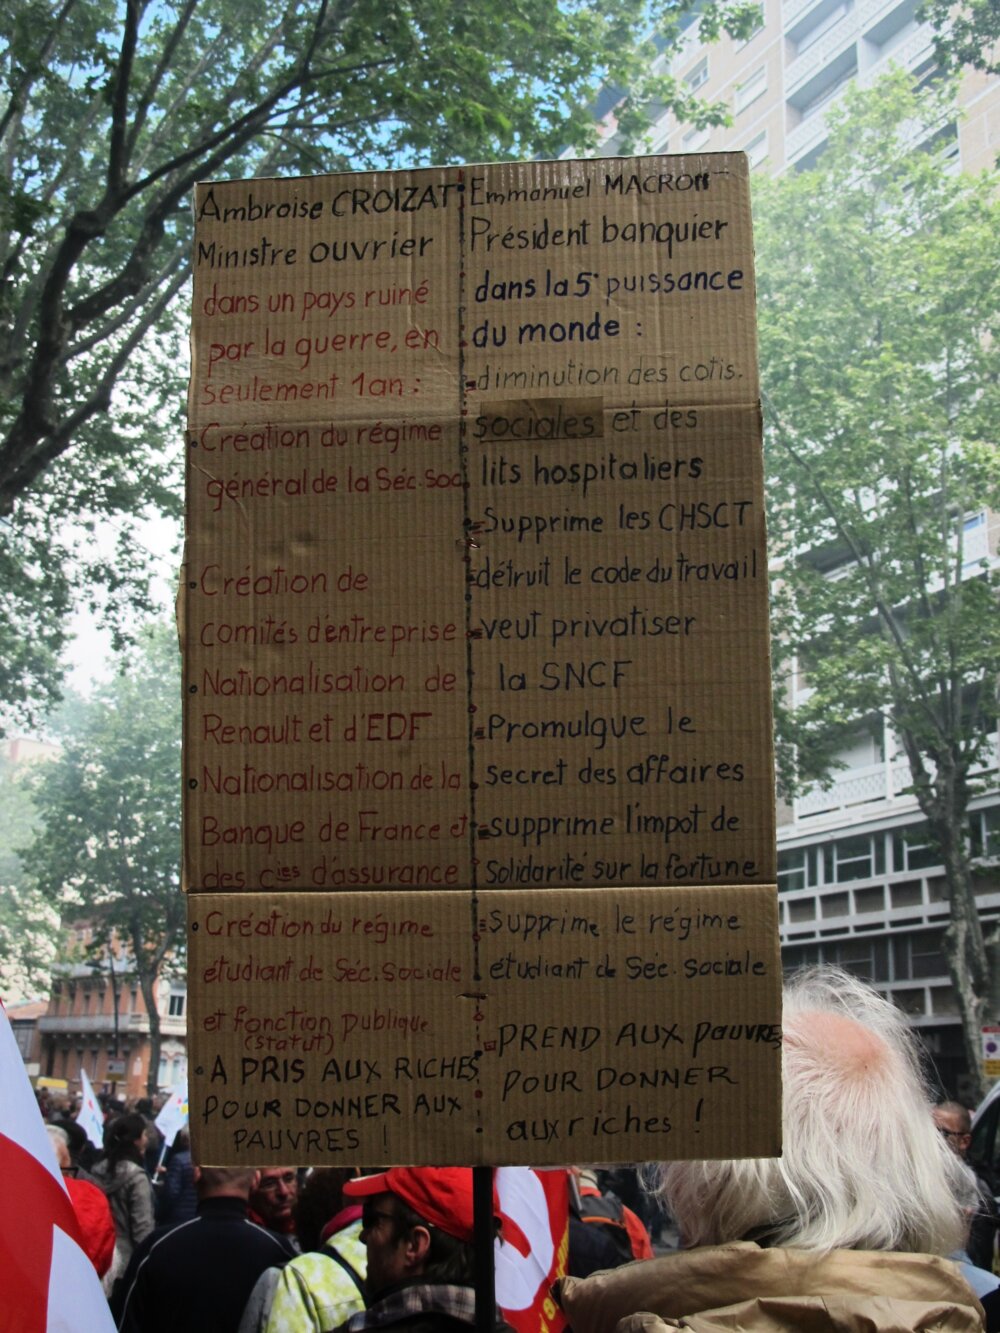 Ambroise CROIZAT
Ministre ouvrier
dans un pays ruiné
par la guerre, en
seulement 1an :
• Création du régime
général de la Séc. Soc.
• Création de
comités d'entreprise
• Nationalisation de
Renault et d'EDF
• Nationalisation de la
Banque de France et
des cies d'assurance
• Création du régime
étudiant de Séc. Sociale
et fonction publique
(statut)
• A PRIS AUX RICHES
POUR DONNER AUX
PAUVRES !
Emmanuel MACRON
Président banquier
dans la 5e puissance
du monde :
diminution des cotis.
sociales et des
lits hospitaliers
Supprime les CHSCT
détruit le code du travail
veut privatiser
la SNCF
Promulgue le
secret des affaires
supprime l'impot de
Solidarité sur la fortune
Supprime le régime
étudiant de Séc. Sociale
PREND AUX Pauvres
POUR DONNER
aux riches !